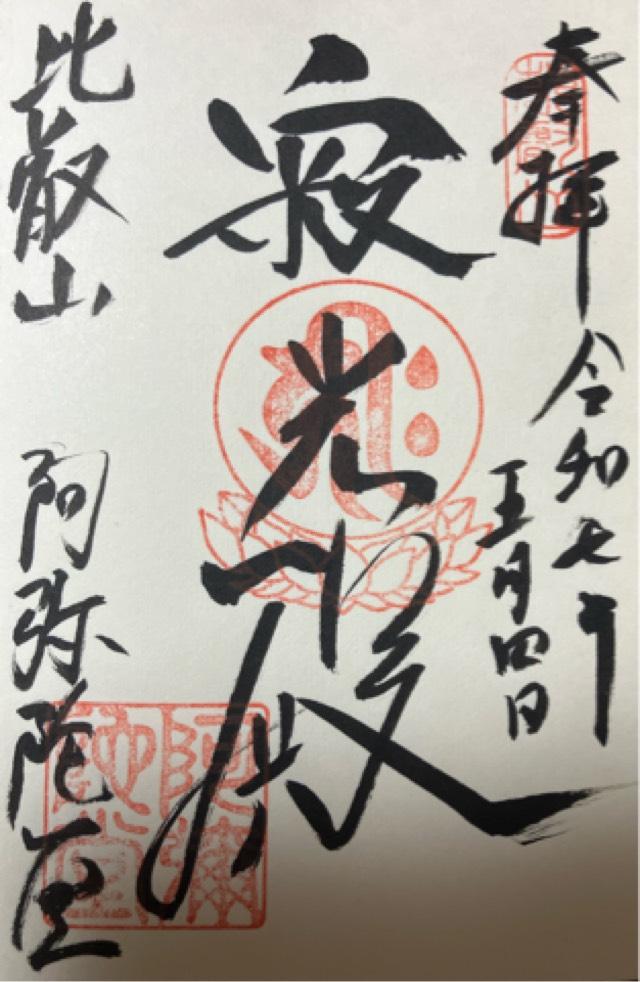 奉拝
令和七年
五月四日
寂光殿
比叡山
阿弥陀堂
阿彌
陀堂